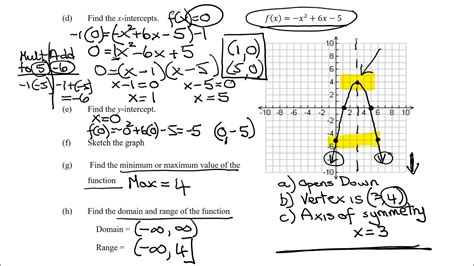 (d) Find the x-intercepts. f(x)=0
-1(0)=(-x²+6x-5)-1
0=x²-6x+5
Mult Add
to 5 -6
-1(-5) -1+(-5)
=-6
0=(x-1)(x-5)
x-1=0 x-5=0
x=1 x=5
(1,0)
(5,0)
(e) Find the y-intercept.
x=0
f(0)=-0²+6(0)-5=-5 (0,-5)
(f) Sketch the graph
(g) Find the minimum or maximum value of the
function Max=4
(h) Find the domain and range of the function
Domain = (-∞, ∞)
Range = (-∞, 4]
f(x) = -x² + 6x - 5
10
8
6
4
2
-10 -8 -6 -4 -2 2 4 6 8 10
-2
-4
-6
-8
-10
a) Opens Down
b) Vertex is (3,4)
c) Axis of symmetry
x=3